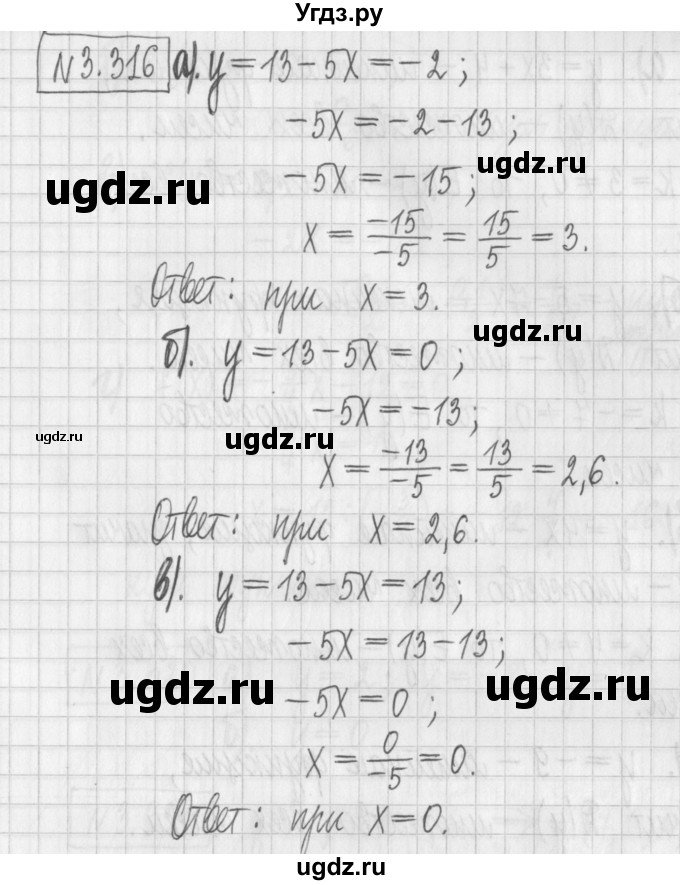 Угдз.ру
№3.316 а). y = 13 - 5x = -2 ;
-5x = -2 - 13 ;
ugdz.ru
-5x = -15 ;
ugdz.ru
x = -15/-5 = 15/5 = 3.
Ответ: при x = 3.
ugdz.ru
б). y = 13 - 5x = 0 ;
-5x = -13 ;
ugdz.ru
ugdz.ru
x = -13/-5 = 13/5 = 2,6.
Ответ: при x = 2,6.
в). y = 13 - 5x = 13 ;
-5x = 13 - 13 ;
ugdz.ru
ugdz.ru
-5x = 0 ;
x = 0/-5 = 0.
ugdz.ru
Ответ: при x = 0.
ugdz.ru